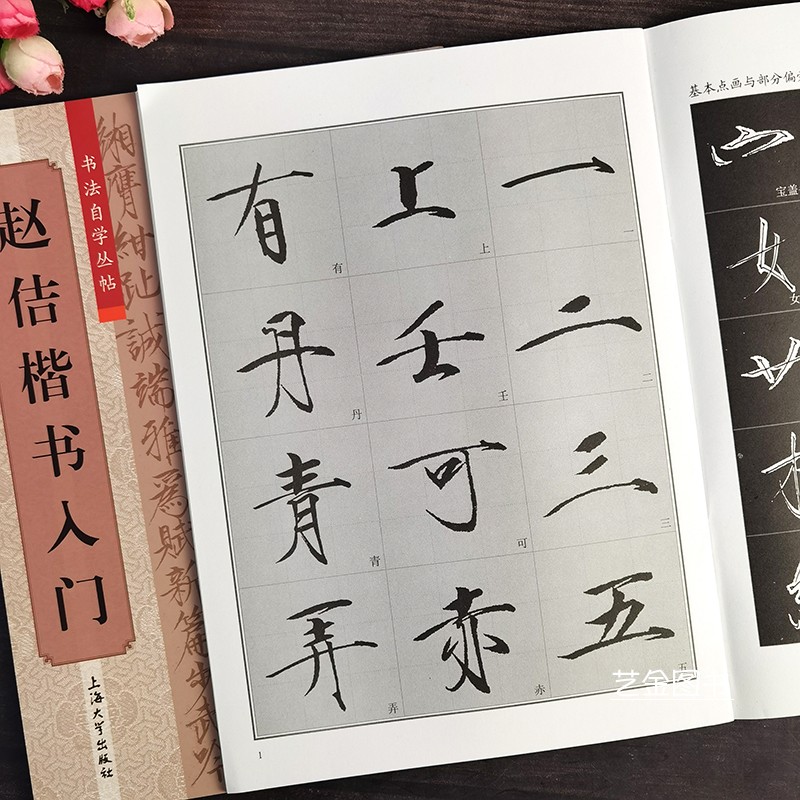 书法自学丛帖
赵佶楷书入门
上海大学出版社
誠端雅為賦新篇
一
一
二
二
三
三
五
五
上
上
壬
壬
可
可
赤
赤
有
有
丹
丹
青
青
弄
弄
1
基本点画与部分偏
宝盖
女
女
艺金图书